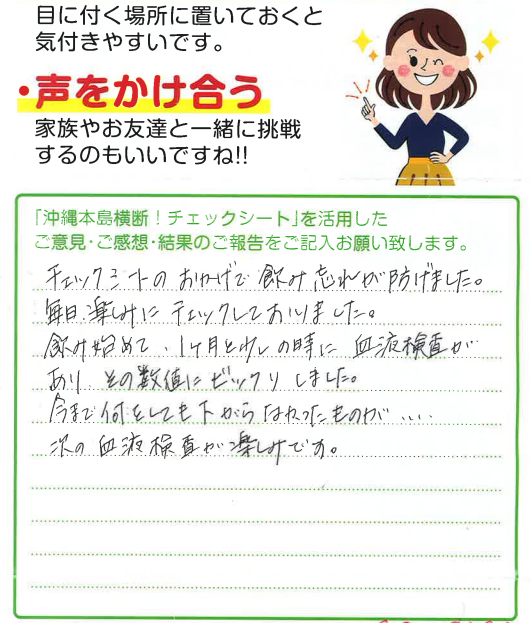 目に付く場所に置いておくと
気付きやすいです。
・声をかけ合う
家族やお友達と一緒に挑戦
するのもいいですね!!
「沖縄本島横断！チェックシート」を活用した
ご意見・ご感想・結果のご報告をご記入お願い致します。
チェックシートのおかげで飲み忘れが防げました。
毎日楽しみにチェックしておりました。
飲み始めて、1ヶ月と少しの時に血液検査が
ありその数値にビックリしました。
今まで何をしても下がらなかったものが、、、、
次の血液検査が楽しみです。